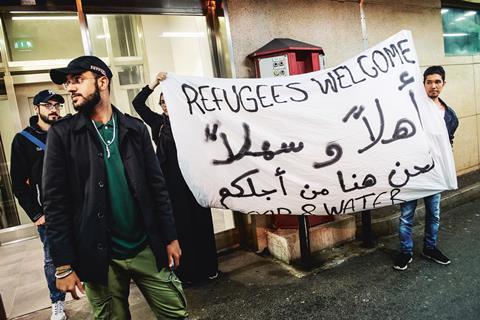 REFUGEES WELCOME
أهلاً و سهلاً
نحن هنا من أجلكم
& WATER